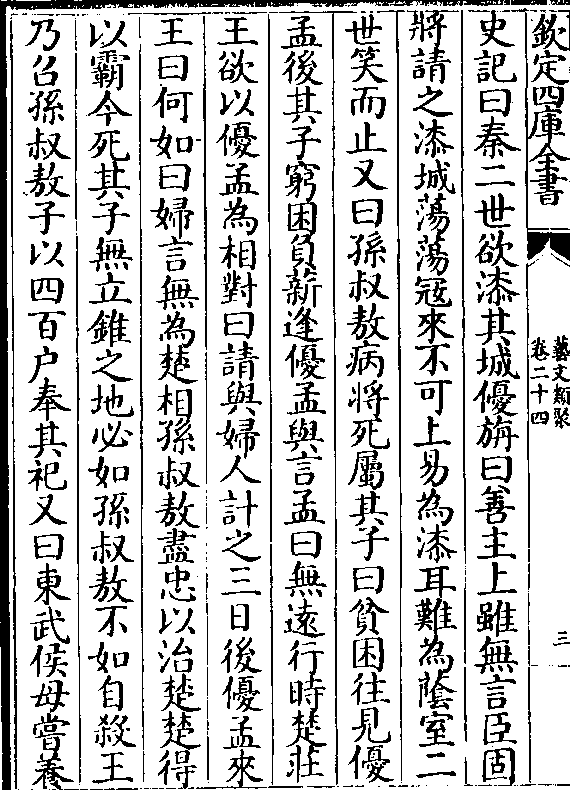 欽定四庫全書
藝文類聚
卷二十四
三
史記曰秦二世欲漆其城優旃曰善主上雖無言臣固
將請之漆城蕩蕩冦來不可上易為漆耳難為蔭室二
世笑而止又曰孫叔敖病將死屬其子曰貧困往見優
孟後其子窮困負薪逢優孟與言孟曰無遠行時楚莊
王欲以優孟為相對曰請與婦人計之三日後優孟來
王曰何如曰婦言無為楚相孫叔敖盡忠以治楚楚得
以霸今死其子無立錐之地必如孫叔敖不如自殺王
乃召孫叔敖子以四百户奉其祀又曰東武侯母嘗養